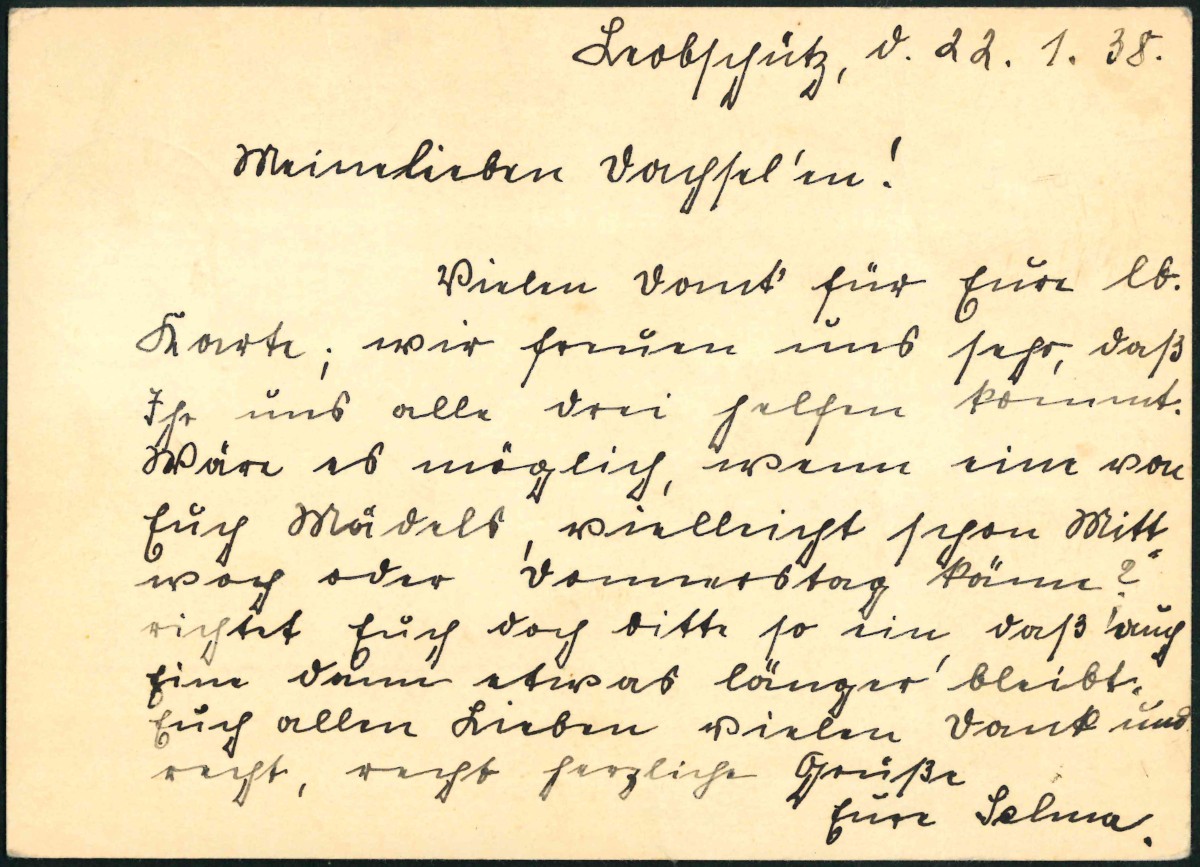 Leobschütz, d. 22. 1. 38.
Meine lieben Dachsel'en!
Vielen Dank für Eure lb.
Karte; wir freuen uns sehr, daß
Ihr uns alle drei helfen kommt.
Wäre es möglich, wenn eine von
Euch Mädels, vielleicht schon Mitt-
woch oder Donnerstag käme?
richtet Euch doch bitte so ein, daß auch
Eine dann etwas länger bleibt.
Euch allen Lieben vielen Dank und
recht, recht herzliche Grüße
Eure Selma.